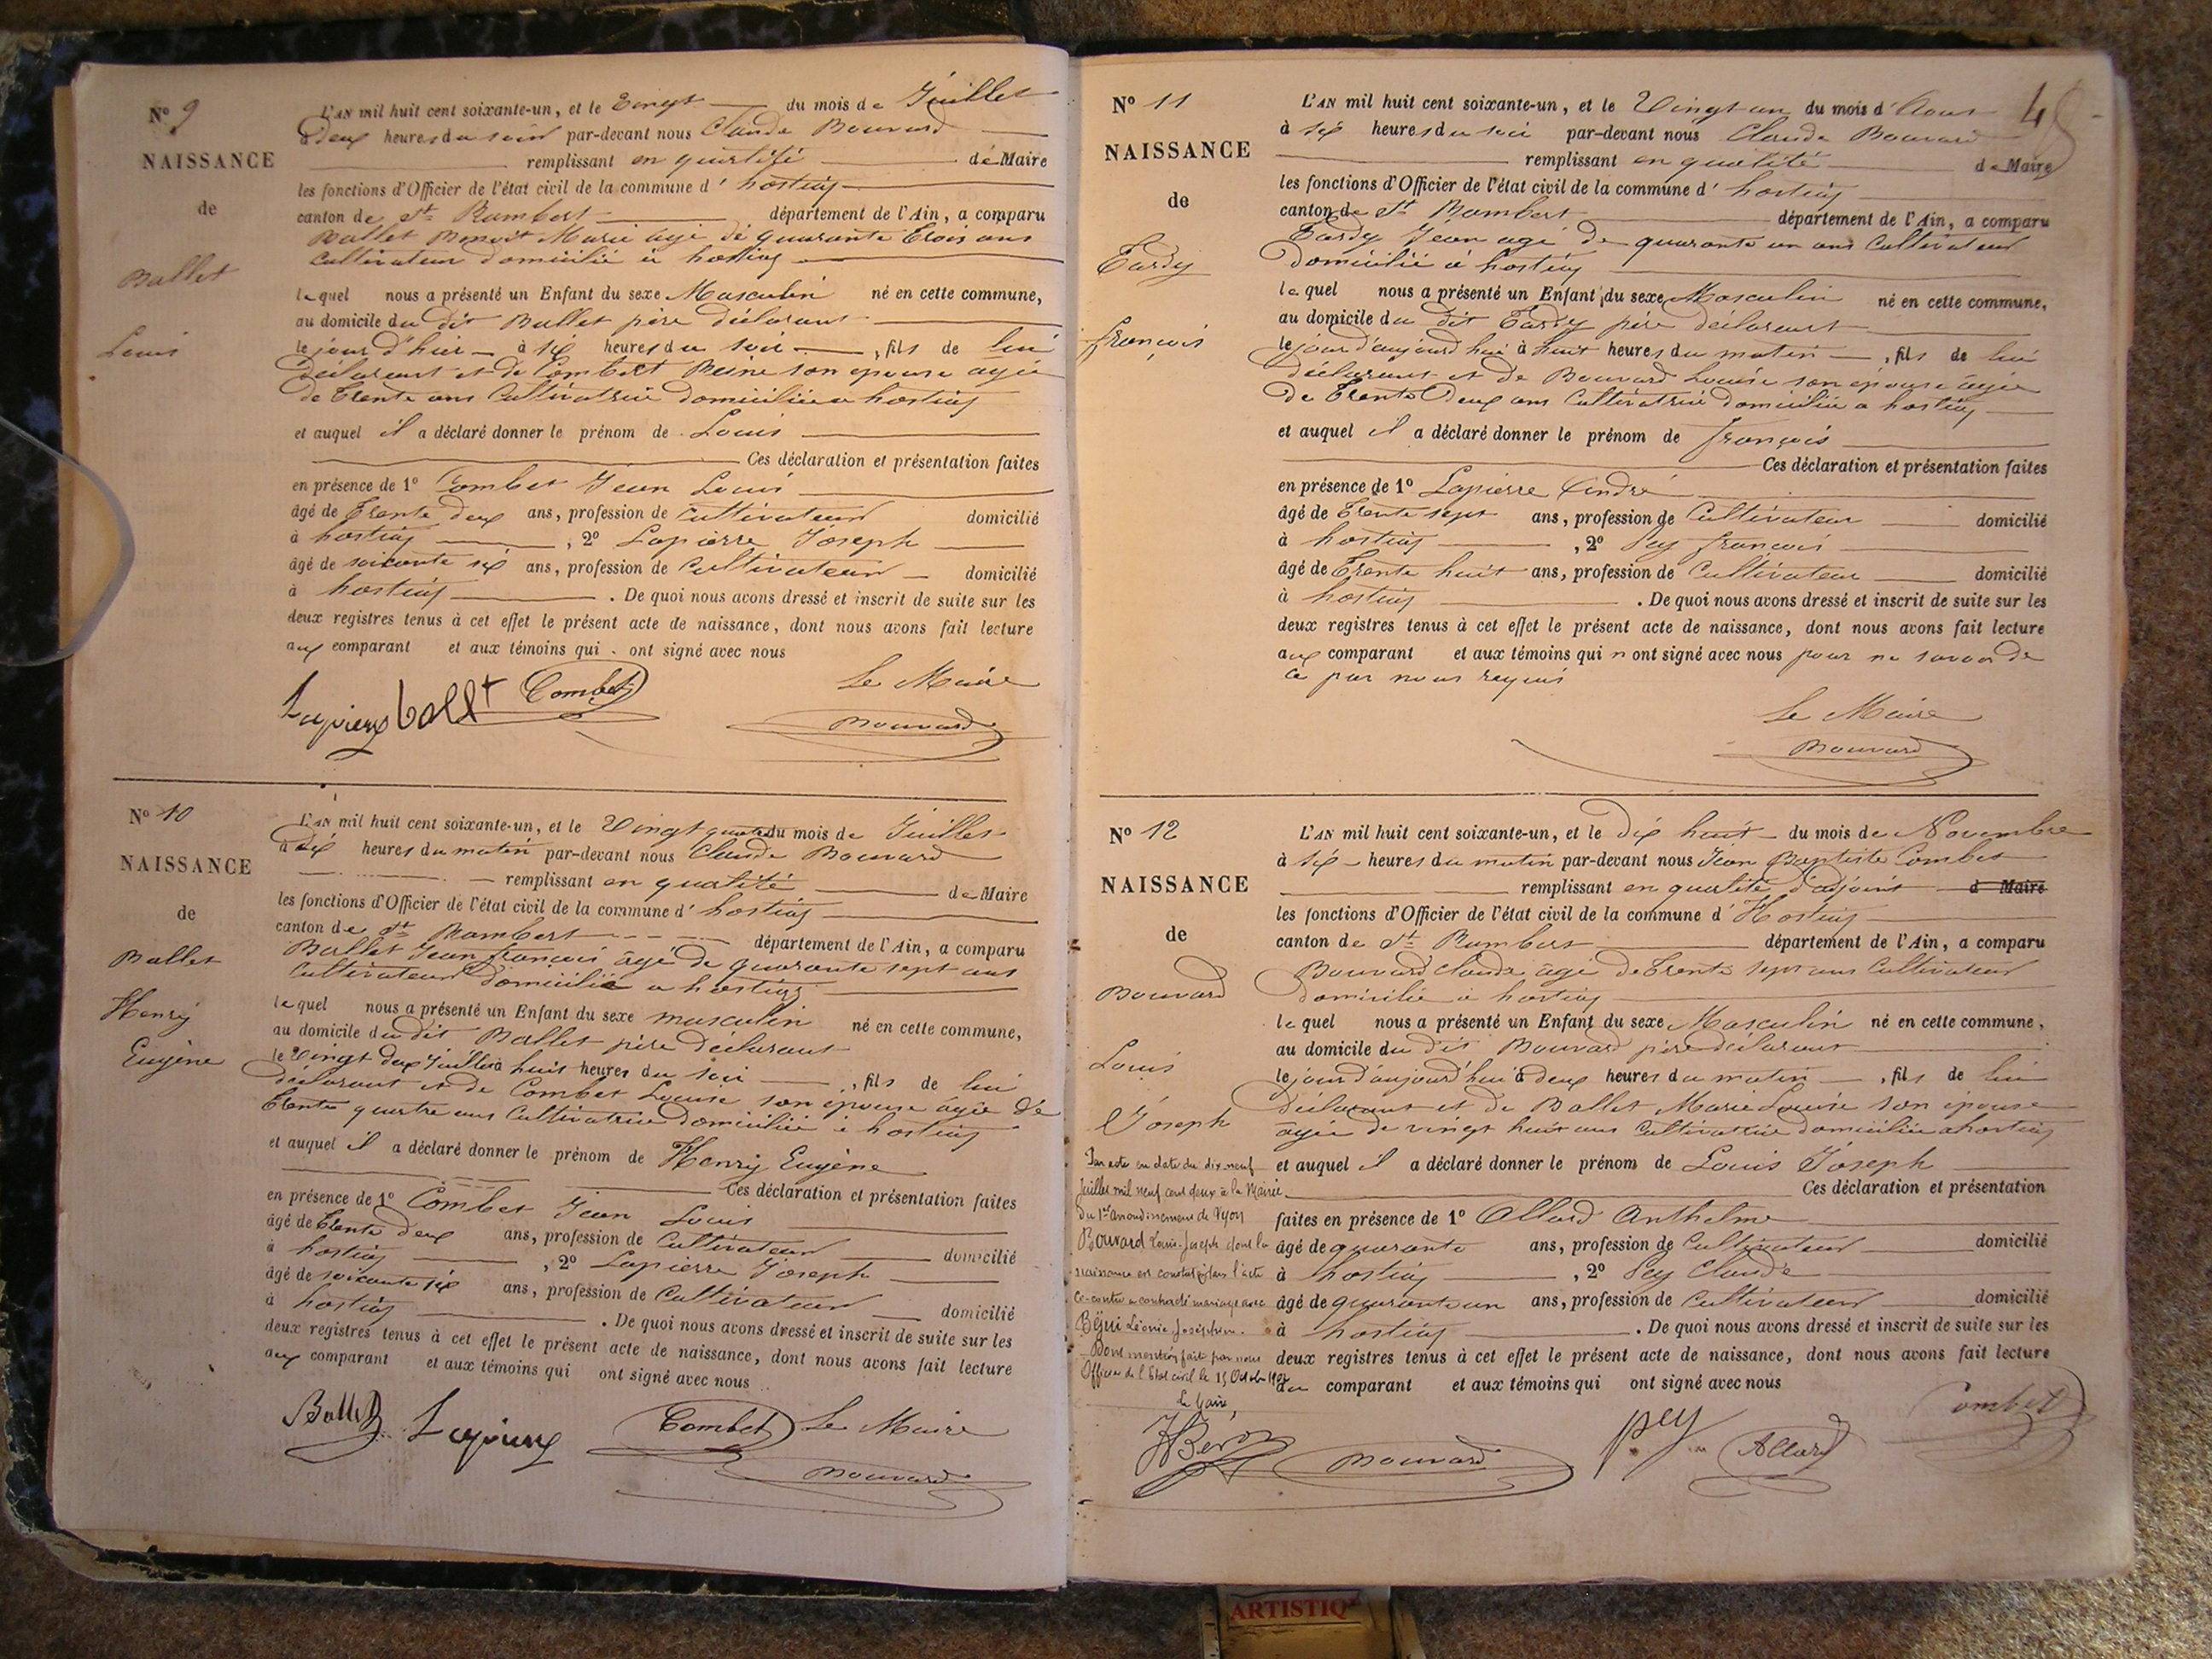 N° 9
NAISSANCE
de
Ballet
Louis
L'AN mil huit cent soixante-un, et le Vingt du mois de Juillet
à deux heures du soir par-devant nous Claude Bouvard
remplissant en qualité de Maire
les fonctions d'Officier de l'état civil de la commune d' hostiaz
canton de St Rambert département de l'Ain, a comparu
Ballet Benoit Marie agé de quarante trois ans
Cultivateur domicilié à hostiaz
lequel nous a présenté un Enfant du sexe Masculin né en cette commune,
au domicile du dit Ballet père déclarant
le jour d'hier à six heures du soir, fils de lui
déclarant et de Combet Reine son epouse agée
de trente ans Cultivatrice domiciliée a hostiaz
et auquel il a déclaré donner le prénom de Louis
Ces déclaration et présentation faites
en présence de 1° Combet Jean Louis
âgé de trente deux ans, profession de Cultivateur domicilié
à hostiaz, 2° Lapierre Joseph
âgé de soixante six ans, profession de Cultivateur domicilié
à hostiaz. De quoi nous avons dressé et inscrit de suite sur les
deux registres tenus à cet effet le présent acte de naissance, dont nous avons fait lecture
aux comparant et aux témoins qui ont signé avec nous
Lapierre ballet Combet Le Maire
Bouvard
N° 10
NAISSANCE
de
Ballet
Henry
Eugène
L'AN mil huit cent soixante-un, et le Vingt quatre du mois de Juillet
à six heures du matin par-devant nous Claude Bouvard
remplissant en qualité de Maire
les fonctions d'Officier de l'état civil de la commune d' hostiaz
canton de St Rambert département de l'Ain, a comparu
Ballet Jean françois âgé de quarante sept ans
Cultivateur domicilié a hostiaz
lequel nous a présenté un Enfant du sexe masculin né en cette commune,
au domicile du dit Ballet père déclarant
le vingt deux Juillet à huit heures du soir, fils de lui
déclarant et de Combet Louise son epouse âgée de
trente quatre ans Cultivatrice domiciliée à hostiaz
et auquel il a déclaré donner le prénom de Henry Eugène
Ces déclaration et présentation faites
en présence de 1° Combet Jean Louis
âgé de trente deux ans, profession de Cultivateur domicilié
à hostiaz, 2° Lapierre Joseph
âgé de soixante six ans, profession de Cultivateur domicilié
à hostiaz. De quoi nous avons dressé et inscrit de suite sur les
deux registres tenus à cet effet le présent acte de naissance, dont nous avons fait lecture
aux comparant et aux témoins qui ont signé avec nous
Ballet Lapierre Combet Le Maire
Bouvard
N° 11
NAISSANCE
de
Tardy
françois
L'AN mil huit cent soixante-un, et le Vingt un du mois d'Aout
à six heures du soir par-devant nous Claude Bouvard
remplissant en qualité de Maire
les fonctions d'Officier de l'état civil de la commune d' hostiaz
canton de St Rambert département de l'Ain, a comparu
Tardy Jean agé de quarante un ans Cultivateur
Domicilié à hostiaz
lequel nous a présenté un Enfant du sexe Masculin né en cette commune,
au domicile du dit Tardy père déclarant
le jour d'aujourd'hui à huit heures du matin, fils de lui
déclarant et de Bouvard Louise son épouse âgée
De trente Deux ans Cultivatrice domiciliée a hostiaz
et auquel il a déclaré donner le prénom de françois
Ces déclaration et présentation faites
en présence de 1° Lapierre André
âgé de trente sept ans, profession de Cultivateur domicilié
à hostiaz, 2° Pey françois
âgé de trente huit ans, profession de Cultivateur domicilié
à hostiaz. De quoi nous avons dressé et inscrit de suite sur les
deux registres tenus à cet effet le présent acte de naissance, dont nous avons fait lecture
aux comparant et aux témoins qui n ont signé avec nous pour ne savoir de
ce par nous requis
Le Maire
Bouvard
N° 12
NAISSANCE
de
Bouvard
Louis
Joseph
Par acte en date du dix neuf
Juillet mil neuf cent deux à la Mairie
du 1er arrondissement de Lyon
Bouvard Louis-Joseph dont la
naissance est constatée dans l'acte
ci-contre a contracté mariage avec
Béjui Léonie Joséphine.
Dont mention faite par nous
Officier de l'Etat civil le 15 Octobre 1902
Le Maire,
L'AN mil huit cent soixante-un, et le dix huit du mois de Novembre
à six heures du matin par-devant nous Jean Baptiste Combet
remplissant en qualité d'adjoint d Maire
les fonctions d'Officier de l'état civil de la commune d' Hostiaz
canton de St Rambert département de l'Ain, a comparu
Bouvard Claude âgé de trente sept ans Cultivateur
Domicilié à hostiaz
lequel nous a présenté un Enfant du sexe Masculin né en cette commune,
au domicile du dit Bouvard père déclarant
le jour d'aujourd'hui à deux heures du matin, fils de lui
déclarant et de Ballet Marie Louise son épouse
agée de vingt huit ans Cultivatrice domiciliée a hostiaz
et auquel il a déclaré donner le prénom de Louis Joseph
Ces déclaration et présentation
faites en présence de 1° Allard Anthelme
âgé de quarante ans, profession de Cultivateur domicilié
à hostiaz, 2° Pey Claude
âgé de quarante un ans, profession de Cultivateur domicilié
à hostiaz. De quoi nous avons dressé et inscrit de suite sur les
deux registres tenus à cet effet le présent acte de naissance, dont nous avons fait lecture
au comparant et aux témoins qui ont signé avec nous
Bouvard pey Allard Combet
ARTISTIQ